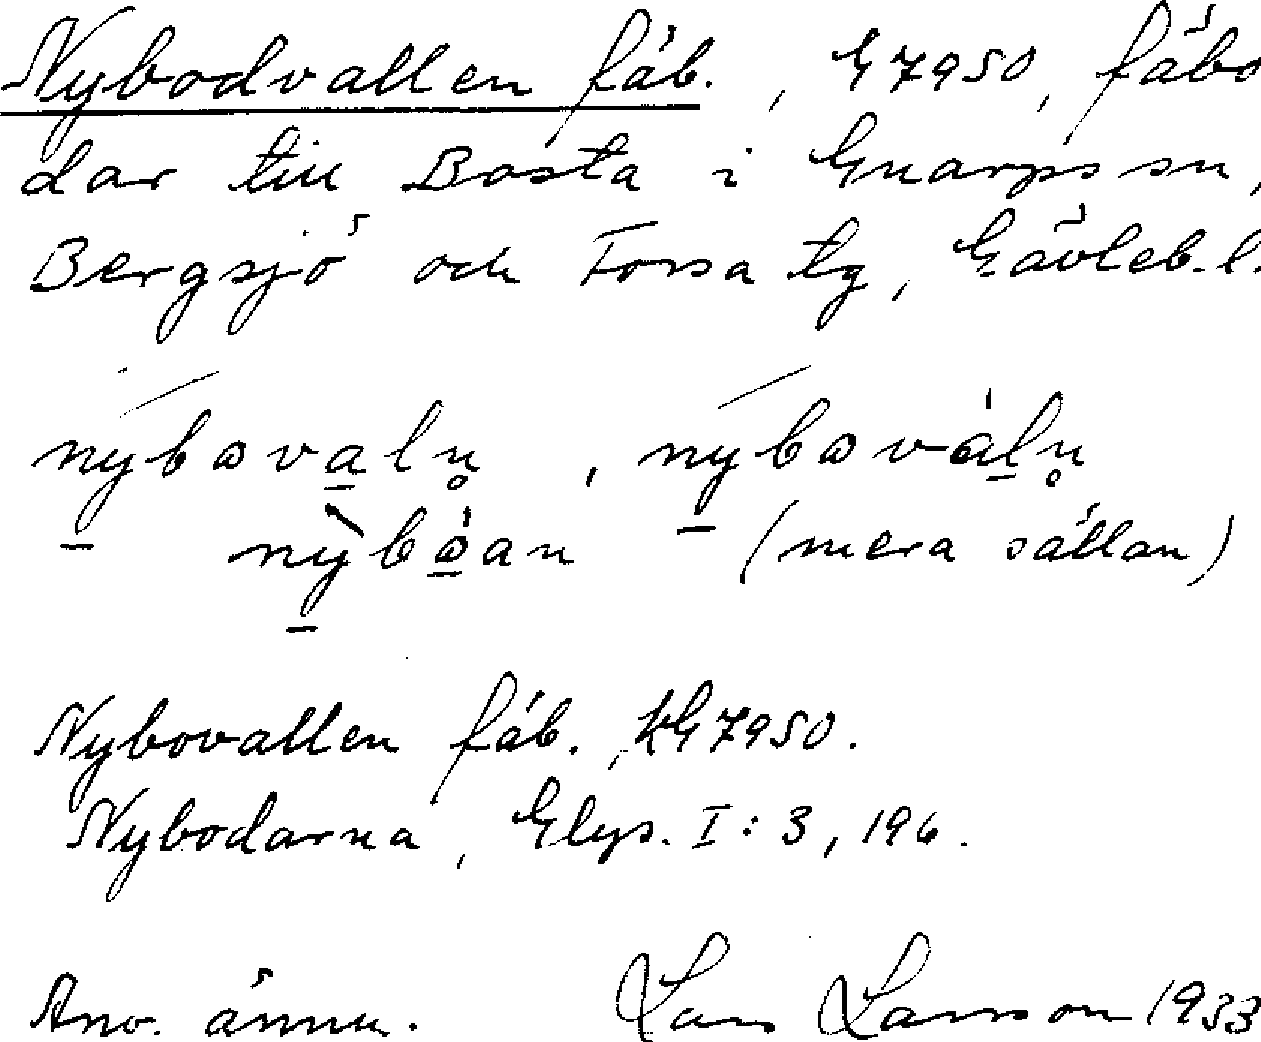 Nybodvallen fäb., G7950, fäbo
dar till Bosta i Gnarps sn,
Bergsjö och Forsa tg, Gävleb.l.
nybovaln̥, nybováln̥
nybóan (mera sällan)
Nybovallen fäb., kG7950.
Nybodarna, Elgs. I:3, 196.
Anv. ännu. Lars Larsson 1933